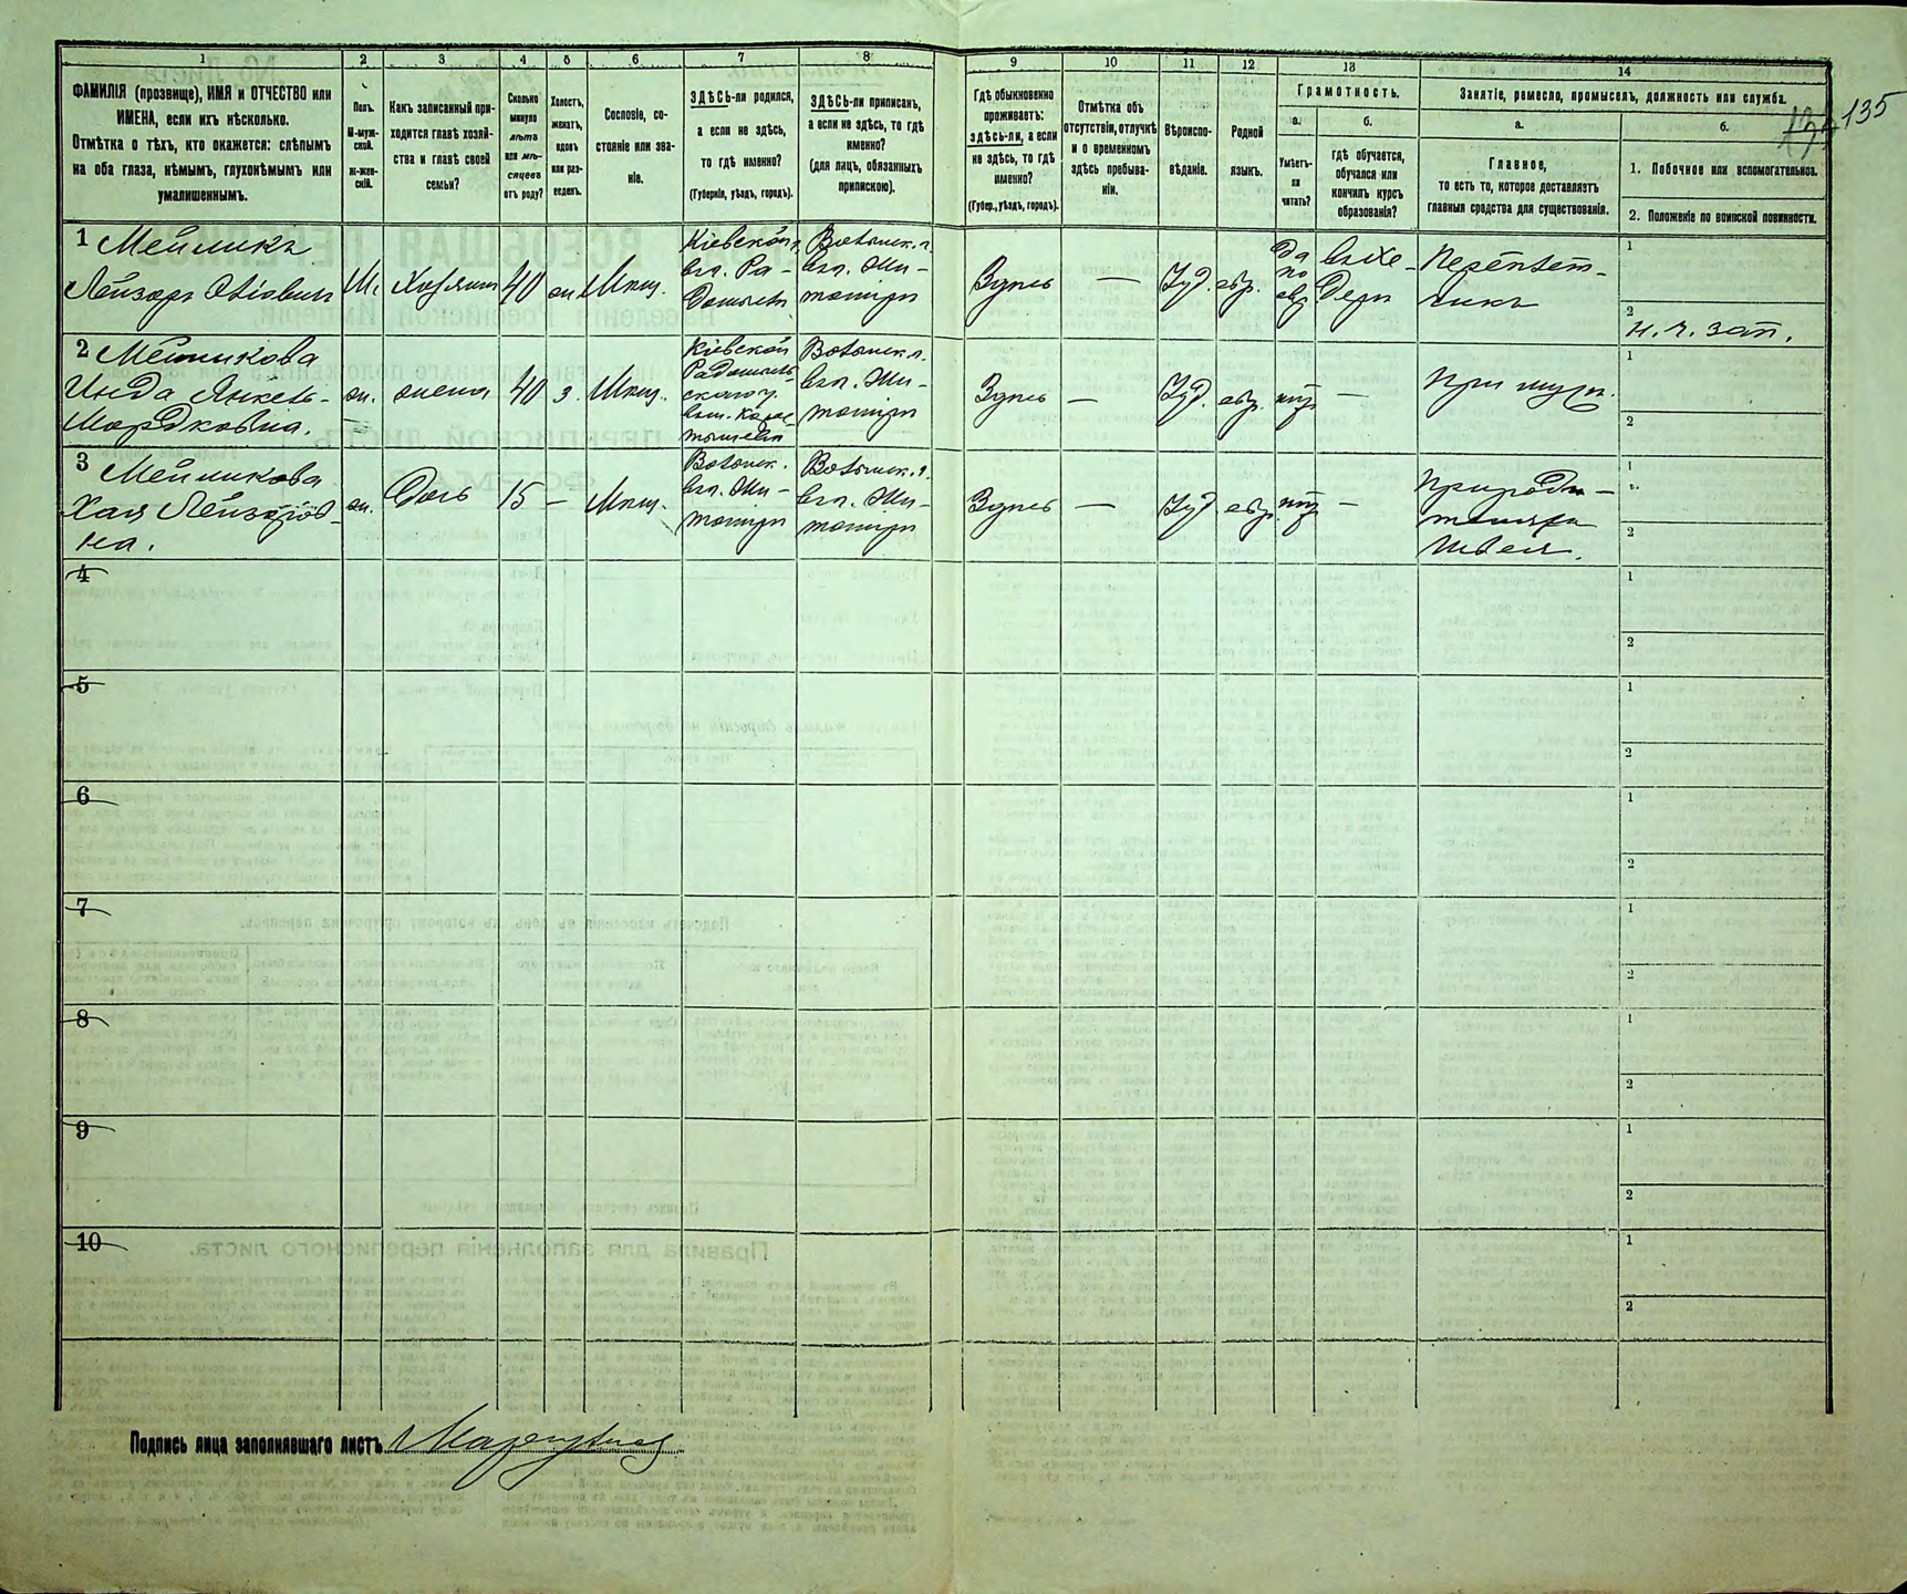 135
1
2
3
4
5
6
7
8
9
10
11
12
13
14
ФАМИЛІЯ (прозвище), ИМЯ и ОТЧЕСТВО или
ИМЕНА, если ихъ нѣсколько.
Отмѣтка о тѣхъ, кто окажется: слѣпымъ
на оба глаза, нѣмымъ, глухонѣмымъ или
умалишеннымъ.
Полъ.
М-муж-
ской.
Ж-жен-
скій.
Какъ записанный при-
ходится главѣ хозяй-
ства и главѣ своей
семьи?
Сколько
минуло
лѣтъ
или мѣ-
сяцевъ
отъ роду?
Холостъ,
женатъ,
вдовъ
или раз-
веденъ.
Сословіе, со-
стояніе или зва-
ніе.
ЗДѢСЬ-ли родился,
а если не здѣсь,
то гдѣ именно?
(Губернія, уѣздъ, городъ).
ЗДѢСЬ-ли приписанъ,
а если не здѣсь, то гдѣ
именно?
(для лицъ, обязанныхъ
припискою).
Гдѣ обыкновенно
проживаетъ:
здѣсь-ли, а если
не здѣсь, то гдѣ
именно?
(Губер., уѣздъ, городъ).
Отмѣтка объ
отсутствіи, отлучкѣ
и о временномъ
здѣсь пребыва-
ніи.
Вѣроиспо-
вѣданіе.
Родной
языкъ.
Грамотность.
а.
Умѣетъ-
ли
читать?
б.
гдѣ обучается,
обучался или
кончилъ курсъ
образованія?
Занятіе, ремесло, промыселъ, должность или служба.
а.
Главное,
то есть то, которое доставляетъ
главныя средства для существованія.
б.
1. Побочное или вспомогательное.
2. Положеніе по воинской повинности.
1 Мейликъ
Лейзоръ
М.
Хозяинъ
40
ж.
Мѣщ.
Кіевской г.
вг. Ра-
домыслъ
Волынск. г.
вг. Жи-
томиръ
Здѣсь
—
Іуд.
евр.
да
по
евр.
въ хе-
дерѣ
Переплет-
чикъ
1
2
н. ч. зап.
2 Мейликова
Инда Янкель-
Мордковна.
ж.
жена
40
з.
Мѣщ.
Кіевской
Радомысль-
скаго у.
вм. Корос-
тышевѣ
Волынск. г.
вг. Жи-
томиръ
Здѣсь
—
Іуд.
евр.
нѣт
—
При мужѣ.
1
2
3 Мейликова
Хая Лейзоров-
на.
ж.
Дочь
15
—
Мѣщ.
Волынск.
вг. Жи-
томирѣ
Волынск. г.
вг. Жи-
томиръ
Здѣсь
—
Іуд.
евр.
нѣт
—
При роди-
теляхъ
Швея.
1
2
4
1
2
5
1
2
6
1
2
7
1
2
8
1
2
9
1
2
10
1
2
Подпись лица заполнявшаго листъ